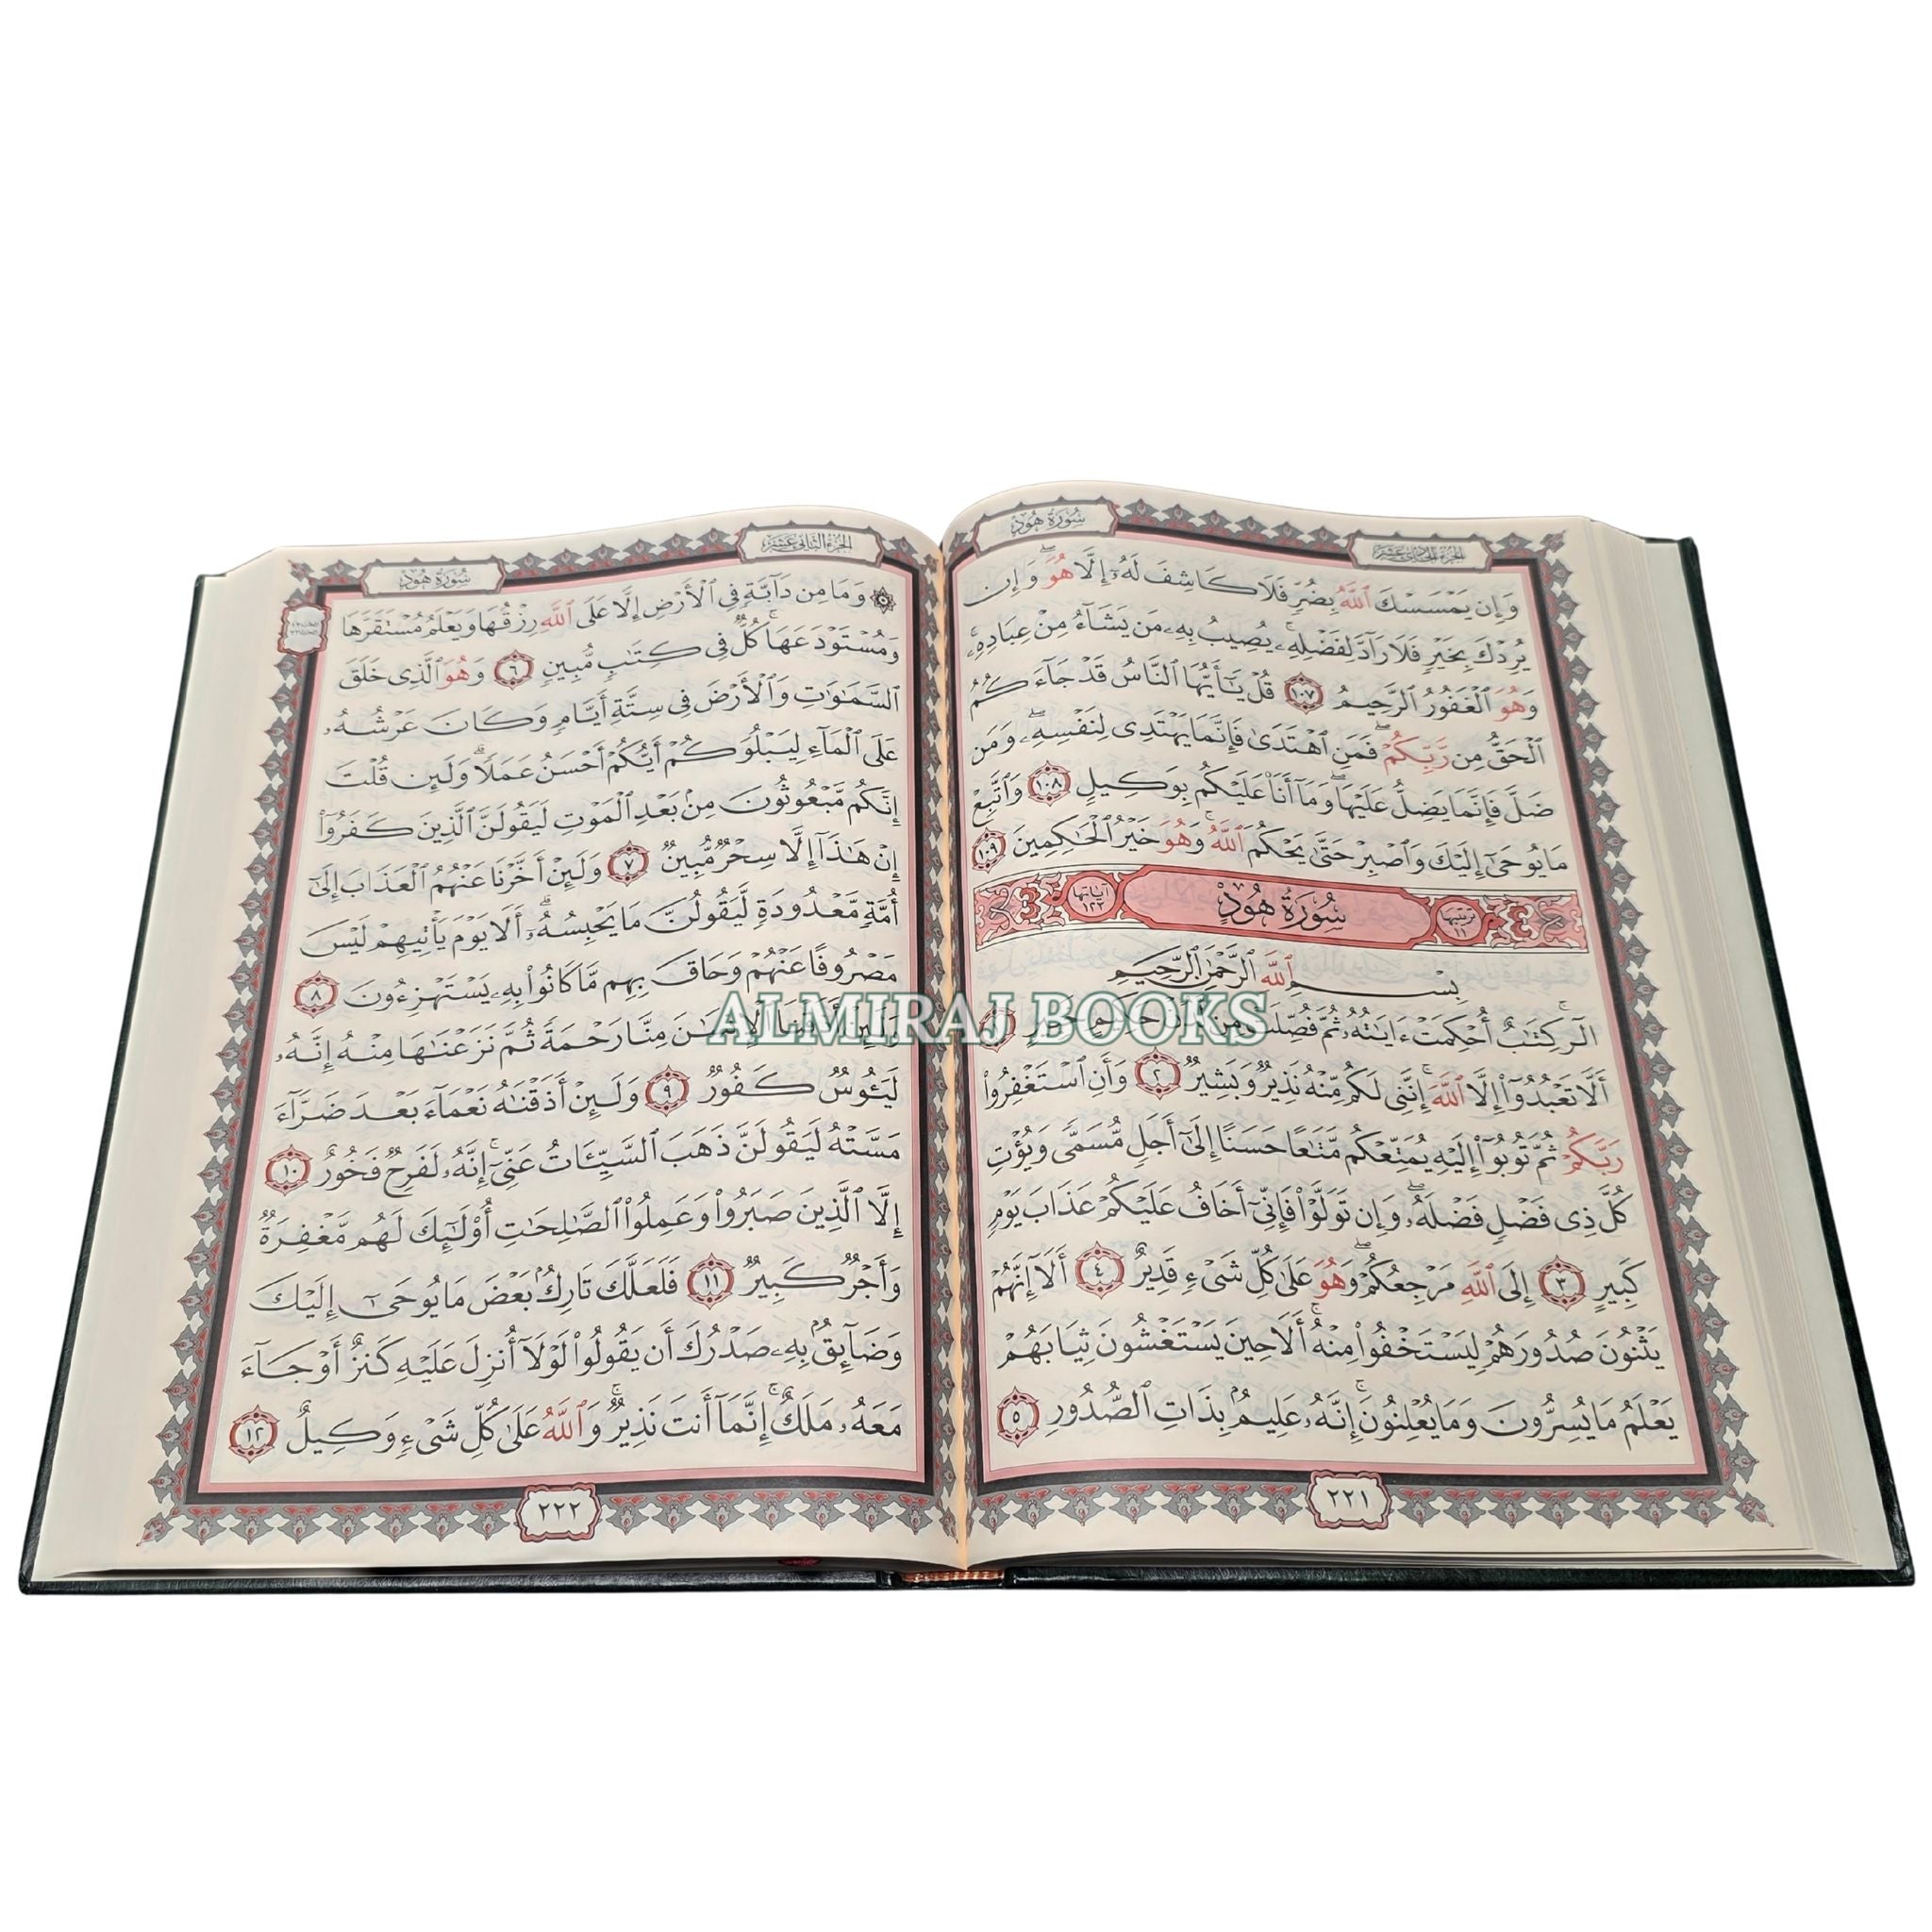 سُورَةُ هُودٍ
الجزء الحادي عشر
وَإِن يَمْسَسْكَ ٱللَّهُ بِضُرٍّ فَلَا كَاشِفَ لَهُۥٓ إِلَّا هُوَۖ وَإِن
يُرِدْكَ بِخَيْرٍ فَلَا رَآدَّ لِفَضْلِهِۦۚ يُصِيبُ بِهِۦ مَن يَشَآءُ مِنْ عِبَادِهِۦۚ
وَهُوَ ٱلْغَفُورُ ٱلرَّحِيمُ ١٠٧ قُلْ يَٰٓأَيُّهَا ٱلنَّاسُ قَدْ جَآءَكُمُ
ٱلْحَقُّ مِن رَّبِّكُمْۖ فَمَنِ ٱهْتَدَىٰ فَإِنَّمَا يَهْتَدِى لِنَفْسِهِۦۖ وَمَن
ضَلَّ فَإِنَّمَا يَضِلُّ عَلَيْهَاۖ وَمَآ أَنَا۠ عَلَيْكُم بِوَكِيلٍ ١٠٨ وَٱتَّبِعْ
مَا يُوحَىٰٓ إِلَيْكَ وَٱصْبِرْ حَتَّىٰ يَحْكُمَ ٱللَّهُۚ وَهُوَ خَيْرُ ٱلْحَٰكِمِينَ ١٠٩
ترتيبها ١١ سُورَةُ هُودٍ آياتها ١٢٣
بِسْمِ ٱللَّهِ ٱلرَّحْمَٰنِ ٱلرَّحِيمِ
الٓرۚ كِتَٰبٌ أُحْكِمَتْ ءَايَٰتُهُۥ ثُمَّ فُصِّلَتْ مِن لَّدُنْ حَكِيمٍ خَبِيرٍ ١
أَلَّا تَعْبُدُوٓا۟ إِلَّا ٱللَّهَۚ إِنَّنِى لَكُم مِّنْهُ نَذِيرٌ وَبَشِيرٌ ٢ وَأَنِ ٱسْتَغْفِرُوا۟
رَبَّكُمْ ثُمَّ تُوبُوٓا۟ إِلَيْهِ يُمَتِّعْكُم مَّتَٰعًا حَسَنًا إِلَىٰٓ أَجَلٍ مُّسَمًّى وَيُؤْتِ
كُلَّ ذِى فَضْلٍ فَضْلَهُۥۖ وَإِن تَوَلَّوْا۟ فَإِنِّىٓ أَخَافُ عَلَيْكُمْ عَذَابَ يَوْمٍ
كَبِيرٍ ٣ إِلَى ٱللَّهِ مَرْجِعُكُمْۖ وَهُوَ عَلَىٰ كُلِّ شَىْءٍ قَدِيرٌ ٤ أَلَآ إِنَّهُمْ
يَثْنُونَ صُدُورَهُمْ لِيَسْتَخْفُوا۟ مِنْهُۚ أَلَا حِينَ يَسْتَغْشُونَ ثِيَابَهُمْ
يَعْلَمُ مَا يُسِرُّونَ وَمَا يُعْلِنُونَۚ إِنَّهُۥ عَلِيمٌۢ بِذَاتِ ٱلصُّدُورِ ٥
٢٢١
الجزء الثاني عشر
سُورَةُ هُودٍ
وَمَا مِن دَآبَّةٍ فِى ٱلْأَرْضِ إِلَّا عَلَى ٱللَّهِ رِزْقُهَا وَيَعْلَمُ مُسْتَقَرَّهَا
وَمُسْتَوْدَعَهَاۚ كُلٌّ فِى كِتَٰبٍ مُّبِينٍ ٦ وَهُوَ ٱلَّذِى خَلَقَ
ٱلسَّمَٰوَٰتِ وَٱلْأَرْضَ فِى سِتَّةِ أَيَّامٍ وَكَانَ عَرْشُهُۥ
عَلَى ٱلْمَآءِ لِيَبْلُوَكُمْ أَيُّكُمْ أَحْسَنُ عَمَلًاۗ وَلَئِن قُلْتَ
إِنَّكُم مَّبْعُوثُونَ مِنۢ بَعْدِ ٱلْمَوْتِ لَيَقُولَنَّ ٱلَّذِينَ كَفَرُوٓا۟
إِنْ هَٰذَآ إِلَّا سِحْرٌ مُّبِينٌ ٧ وَلَئِنْ أَخَّرْنَا عَنْهُمُ ٱلْعَذَابَ إِلَىٰٓ
أُمَّةٍ مَّعْدُودَةٍ لَّيَقُولُنَّ مَا يَحْبِسُهُۥٓۗ أَلَا يَوْمَ يَأْتِيهِمْ لَيْسَ
مَصْرُوفًا عَنْهُمْ وَحَاقَ بِهِم مَّا كَانُوا۟ بِهِۦ يَسْتَهْزِءُونَ ٨
وَلَئِنْ أَذَقْنَا ٱلْإِنسَٰنَ مِنَّا رَحْمَةً ثُمَّ نَزَعْنَٰهَا مِنْهُ إِنَّهُۥ
لَيَـُٔوسٌ كَفُورٌ ٩ وَلَئِنْ أَذَقْنَٰهُ نَعْمَآءَ بَعْدَ ضَرَّآءَ
مَسَّتْهُ لَيَقُولَنَّ ذَهَبَ ٱلسَّيِّـَٔاتُ عَنِّىٓۚ إِنَّهُۥ لَفَرِحٌ فَخُورٌ ١٠
إِلَّا ٱلَّذِينَ صَبَرُوا۟ وَعَمِلُوا۟ ٱلصَّٰلِحَٰتِ أُو۟لَٰٓئِكَ لَهُم مَّغْفِرَةٌ
وَأَجْرٌ كَبِيرٌ ١١ فَلَعَلَّكَ تَارِكٌۢ بَعْضَ مَا يُوحَىٰٓ إِلَيْكَ
وَضَآئِقٌۢ بِهِۦ صَدْرُكَ أَن يَقُولُوا۟ لَوْلَآ أُنزِلَ عَلَيْهِ كَنزٌ أَوْ جَآءَ
مَعَهُۥ مَلَكٌۚ إِنَّمَآ أَنتَ نَذِيرٌۚ وَٱللَّهُ عَلَىٰ كُلِّ شَىْءٍ وَكِيلٌ ١٢
٢٢٢
ALMIRAJ BOOKS